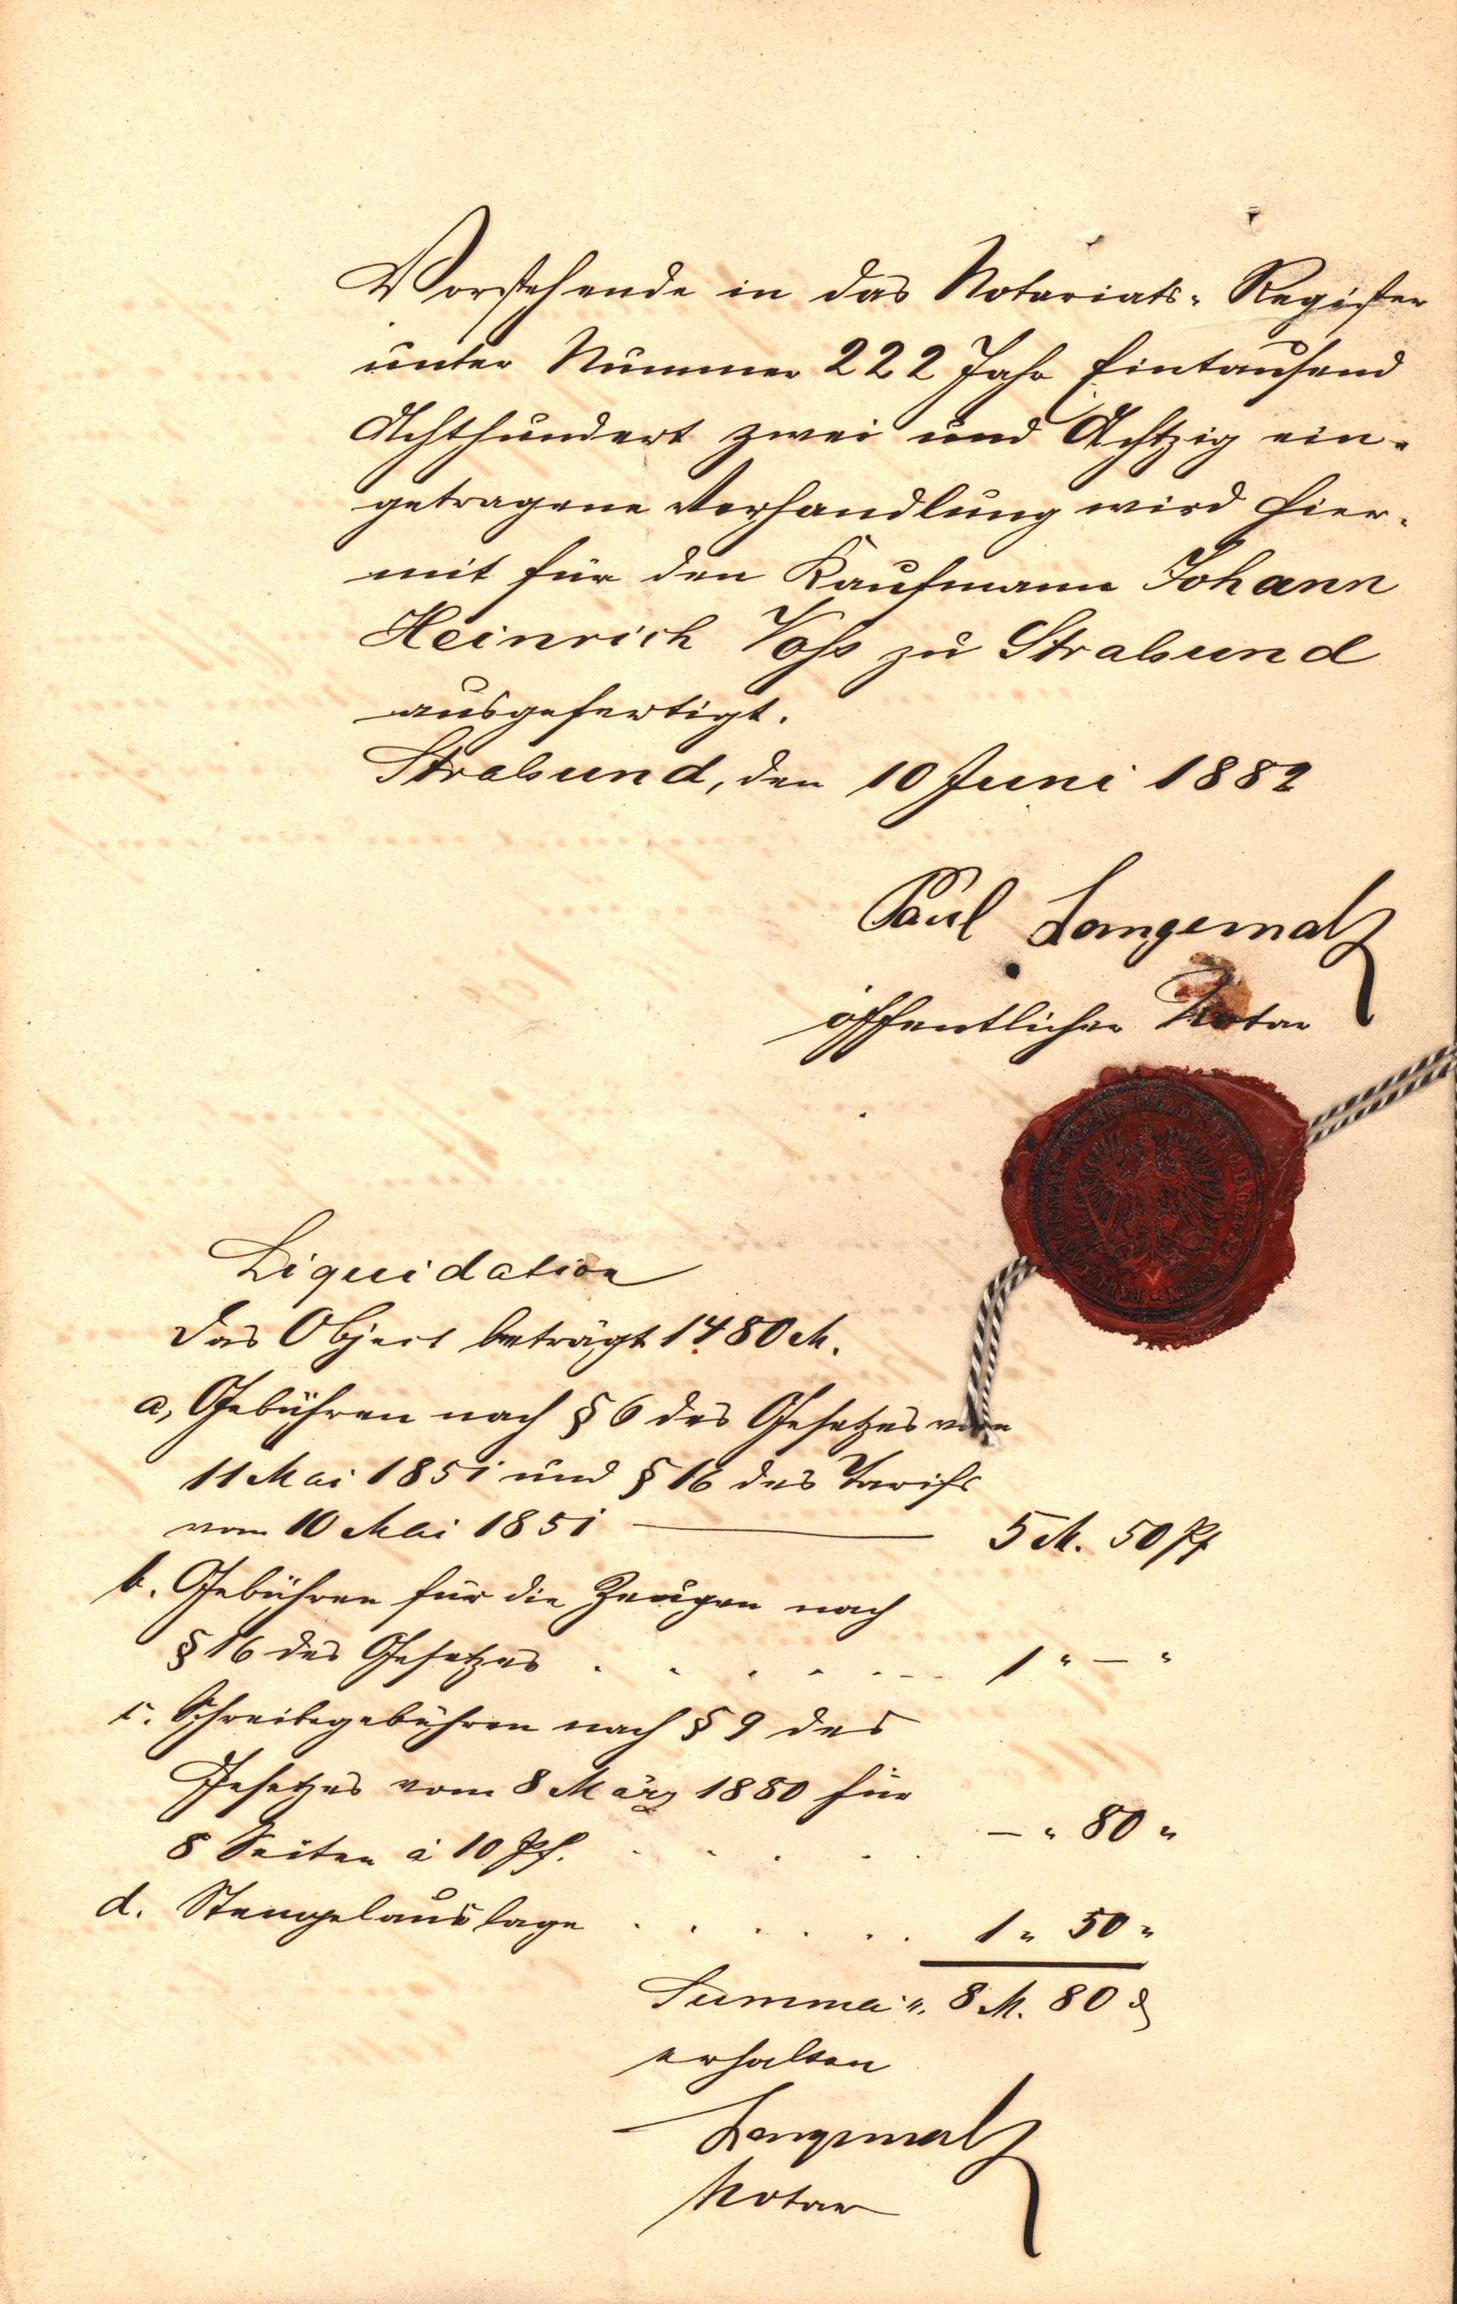 Vorstehende in das Notariats-Register
unter Nummer 222 Jahr Eintausend
Achthundert zwei und Achtzig ein-
getragene Verhandlung wird hier-
mit für den Kaufmann Johann
Heinrich Voss zu Stralsund
ausgefertigt.
Stralsund, den 10 Juni 1882
Paul Langemak
öffentlicher Notar
Liquidation
Das Object beträgt 1480 M.
a, Gebühren nach § 6 des Gesetzes vom
11 Mai 1851 und § 16 des Tarifs
vom 10 Mai 1851 — 5 M. 50 Pf
b. Gebühren für die Zeugen nach
§ 16 des Gesetzes . . . . . . . . 1 " — "
c. Schreibegebühren nach § 9 des
Gesetzes vom 8 März 1880 für
8 Seiten à 10 Pf. . . . . . . — " 80 "
d. Stempelauslage . . . . . . 1 " 50 "
Summa ". 8 M. 80 ₰
erhalten
Langemak
Notar